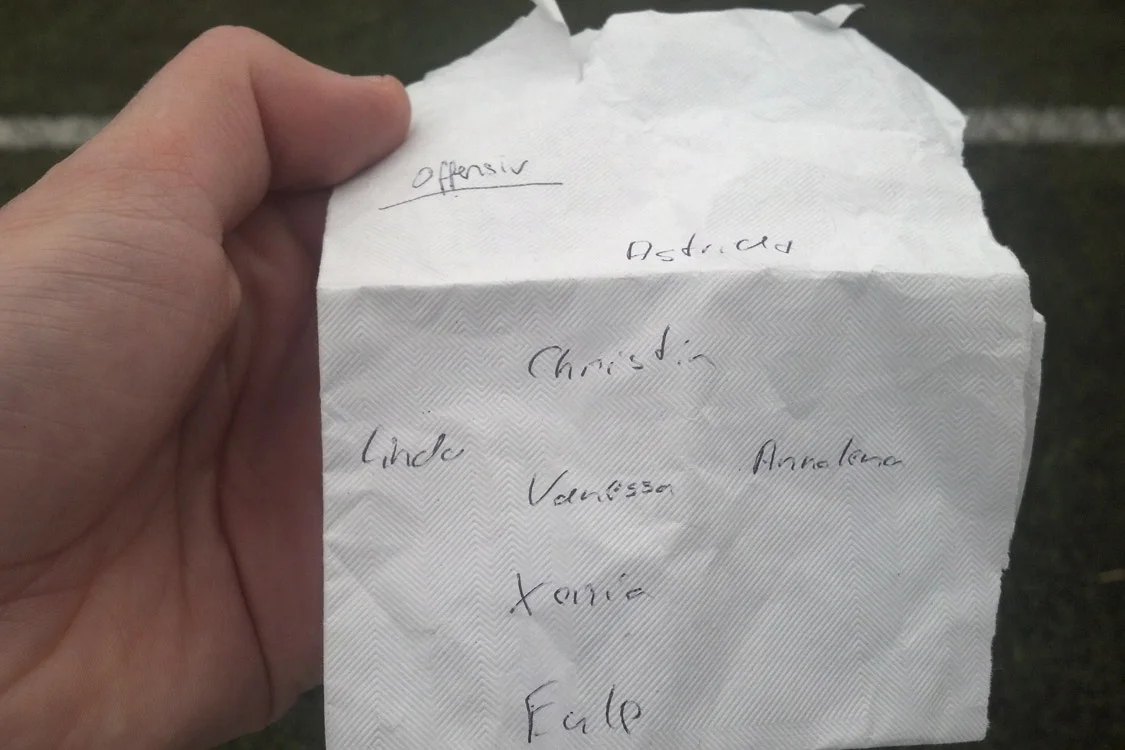 Offensiv
Astrid
Christin
Linda
Annalena
Vanessa
Xenia